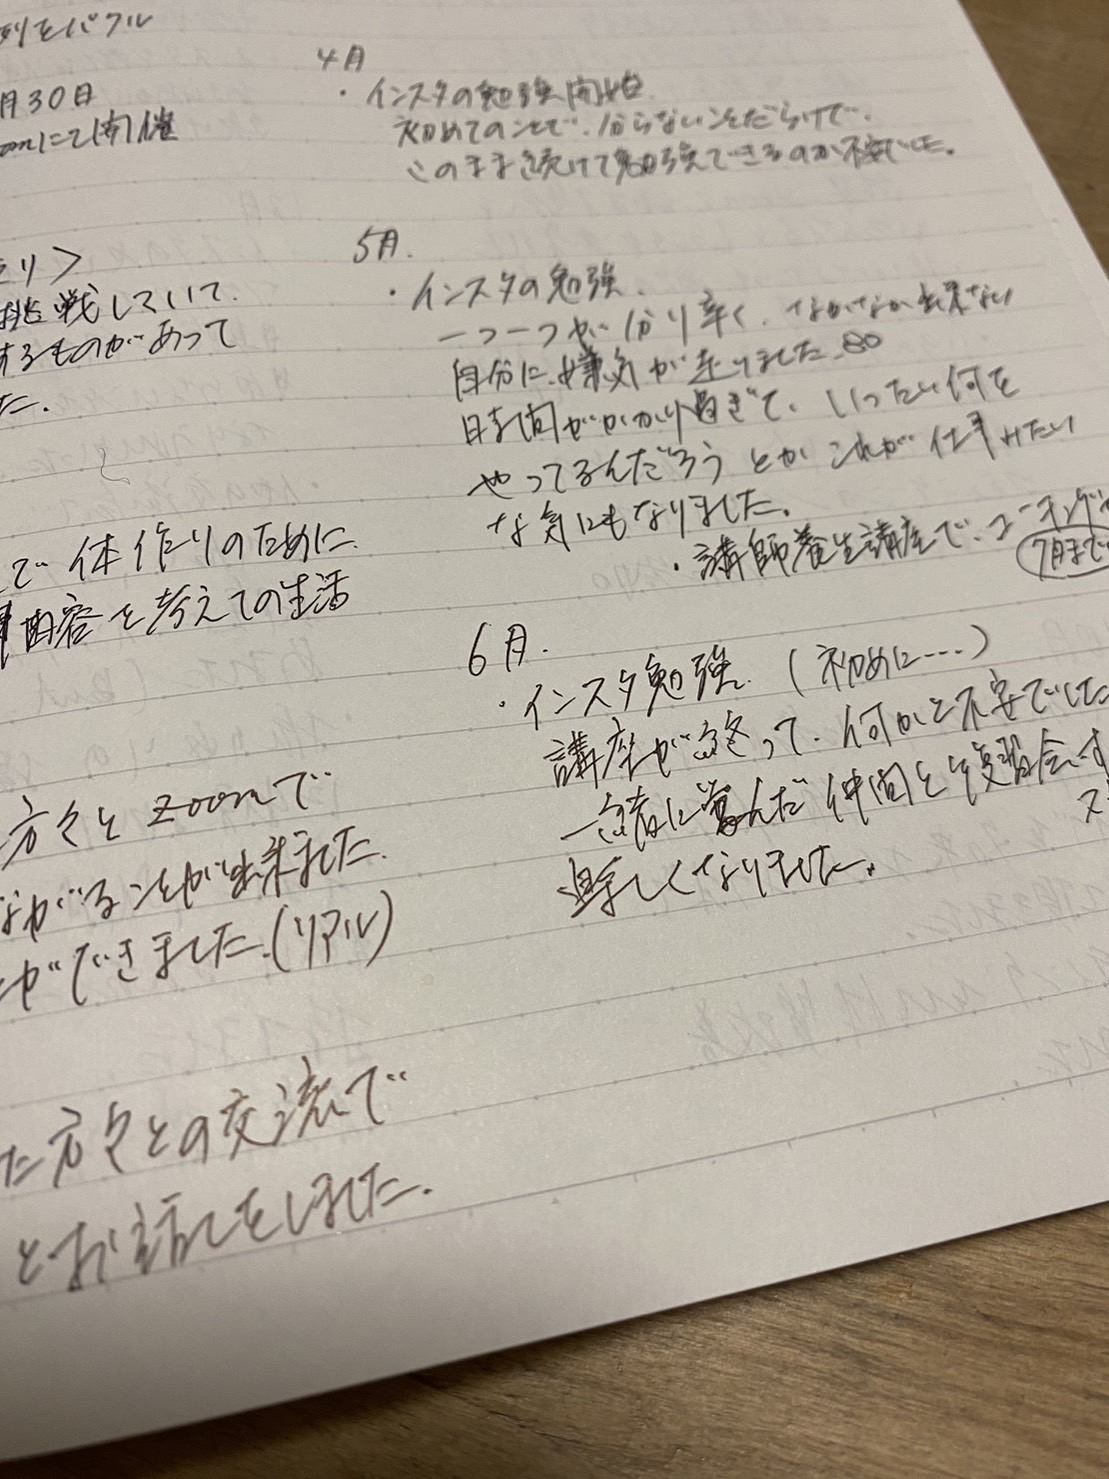 月30日
にて開催
挑戦していて、
するものがあって
た。
で体作りのために
内容を考えての生活
方々とzoomで
ながることが出来ました。
ができました。(リアル)
た方々との交流で
とお話しをしました。
4月
・インスタの勉強開始
初めてのことで、分らないことだらけで、
このまま続けて勉強できるのか不安でした。
5月.
・インスタの勉強、
一つ一つが分り辛く、なかなか出来ない
自分に嫌気が走りました。
時間がかかり過ぎて、いったい何を
やってるんだろうとかこれが仕事みたい
な気にもなりました。
・講師養生講座で、コーチング
7月まで
6月.
・インスタ勉強、(初めに…)
講座が終って、何かと不安でした
一緒に学んだ仲間と復習会
楽しくなりました。